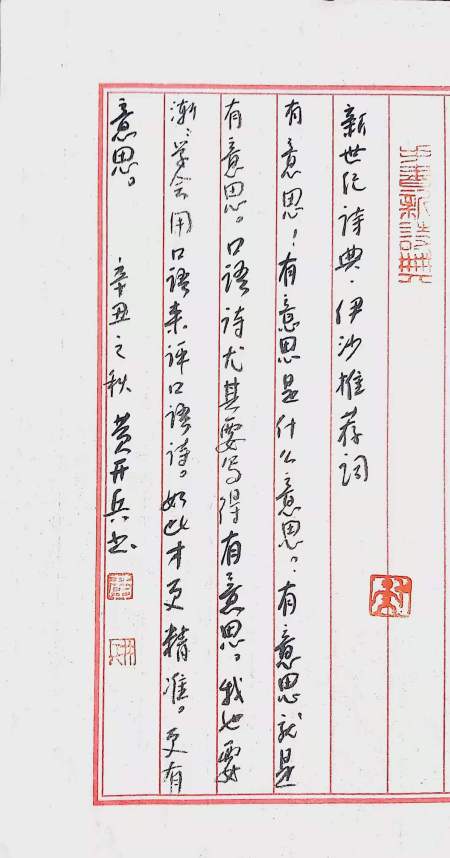 新世纪诗典·伊沙推荐词
有意思！有意思是什么意思？有意思就是
有意思。口语诗尤其要写得有意思。我也要
渐渐学会用口语来评口语诗。如此才更精准。更有
意思。
辛丑之秋 黄开兵书